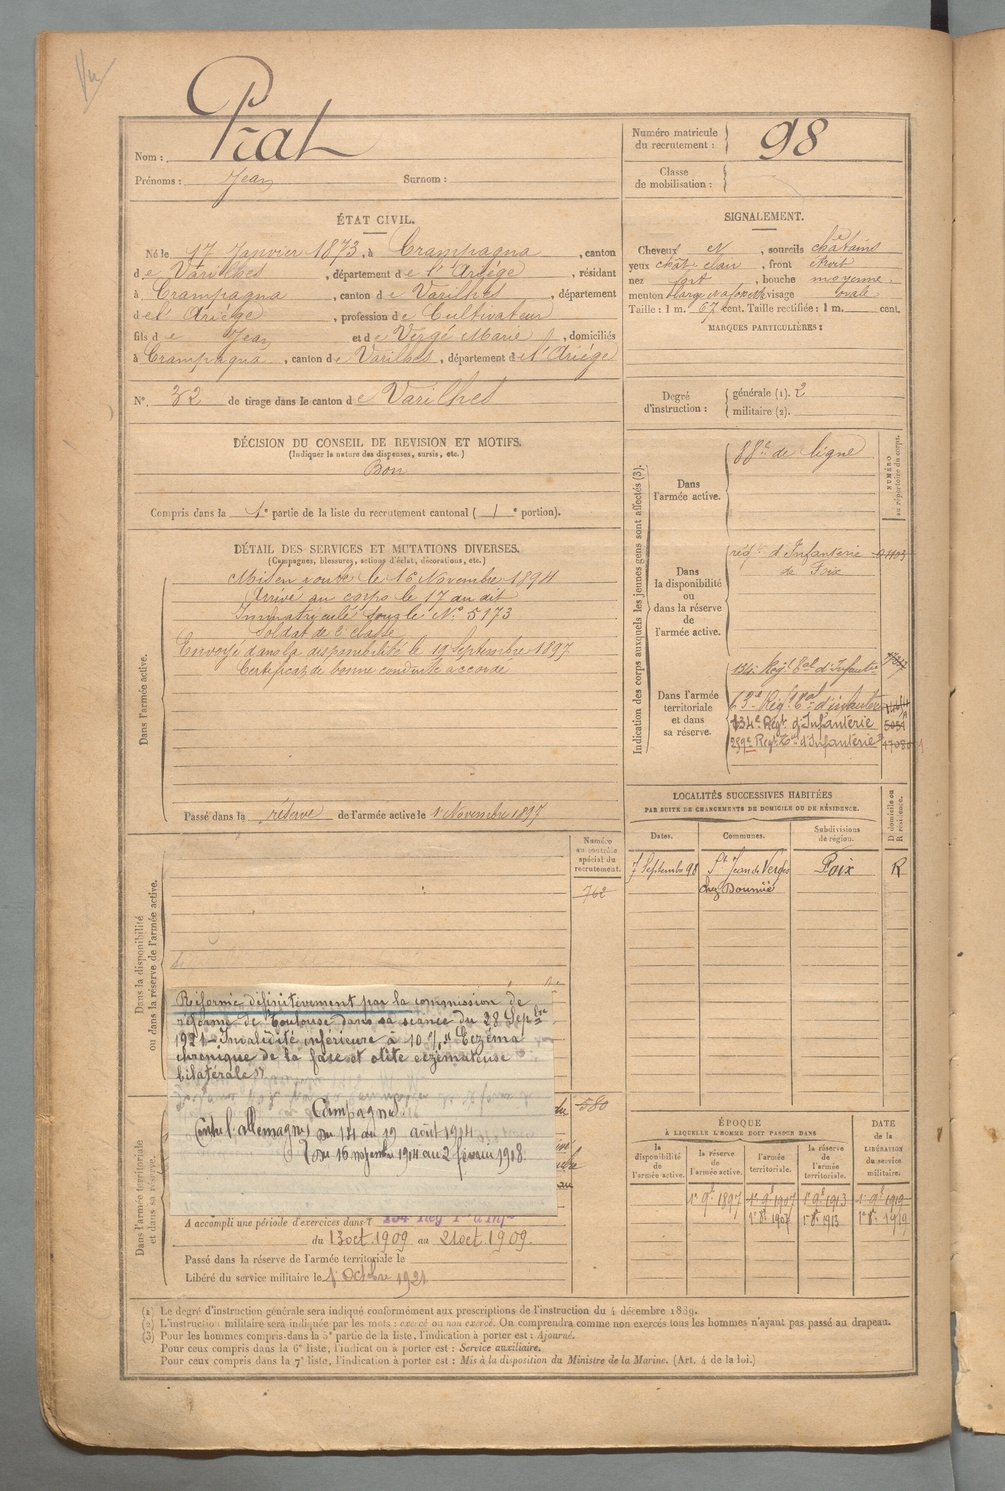 Vu
Nom : Prat
Prénoms : Jean Surnom :
Numéro matricule du recrutement : 98
Classe de mobilisation :
ÉTAT CIVIL.
Né le 17 Janvier 1873, à Crampagna, canton
de Varilhes, département de l'Ariège, résidant
à Crampagna, canton de Varilhes, département
de l'Ariège, profession de Cultivateur
fils de Jean et de Vergé Marie, domiciliés
à Crampagna, canton de Varilhes, département de l'Ariège
N°. 32 de tirage dans le canton de Varilhes
SIGNALEMENT.
Cheveux et, sourcils châtains
yeux chât. clair, front étroit
nez fort, bouche moyenne.
menton large visage ovale.
Taille : 1 m. 67 cent. Taille rectifiée : 1 m. cent.
MARQUES PARTICULIÈRES :
Degré d'instruction : générale (1). 2
militaire (2).
DÉCISION DU CONSEIL DE REVISION ET MOTIFS.
(Indiquer la nature des dispenses, sursis, etc.)
Bon
Compris dans la 1e partie de la liste du recrutement cantonal ( 1 e portion).
DÉTAIL DES SERVICES ET MUTATIONS DIVERSES.
(Campagnes, blessures, actions d'éclat, décorations, etc.)
Dans l'armée active.
Mis en route le 16 Novembre 1894
Arrivé au corps le 17 au dit
Immatriculé sous le N° 5173
Soldat de 2e classe
Envoyé dans la disponibilité le 19 Septembre 1897
Certificat de bonne conduite accordé
Passé dans la réserve de l'armée active le 1r Novembre 1897
Indication des corps auxquels les jeunes gens sont affectés (3).
NUMÉRO au répertoire du corps.
Dans l'armée active.
88e de ligne
Dans la disponibilité ou dans la réserve de l'armée active.
régt d'Infanterie
de Foix
Dans l'armée territoriale et dans sa réserve.
134e Régt Tal d'Infantie
63e Régt Tal d'infanterie
134e Régt d'Infanterie 5051
259e Régt Tal d'Infanterie
LOCALITÉS SUCCESSIVES HABITÉES
PAR SUITE DE CHANGEMENTS DE DOMICILE OU DE RÉSIDENCE.
Dates. Communes. Subdivisions de région. D domicile ou R résidence.
7 Septembre 98 St Jean de Verges Foix R
chez
Numéro au contrôle spécial du recrutement.
762
Dans la disponibilité ou dans la réserve de l'armée active.
Réformé définitivement par la commission de
réforme de Toulouse dans sa séance du 28 Sepbre
1921 Invalidité inférieure à 10 % "Eczéma
chronique de la face et otite eczémateuse
bilatérale"
Campagnes
Contre l'allemagne du 14 au 19 août 1914
du 16 novembre 1914 au 2 février 1918.
580
Dans l'armée territoriale et dans sa réserve.
A accompli une période d'exercices dans l 134 Rég
du 13 oct. 1909 au 21 oct 1909.
Passé dans la réserve de l'armée territoriale le
Libéré du service militaire le 1r Octobre 1921
ÉPOQUE
À LAQUELLE L'HOMME DOIT PASSER DANS
la disponibilité de l'armée active. la réserve de l'armée active. l'armée territoriale. la réserve de l'armée territoriale.
DATE de la LIBÉRATION du service militaire.
1r 9bre 1897 1r 9bre 1907 1r 9bre 1913 1r 9bre 1919
1r 8bre 1907 1r 8bre 1913 1r 8bre 1919
(1) Le degré d'instruction générale sera indiqué conformément aux prescriptions de l'instruction du 4 décembre 1889.
(2) L'instruction militaire sera indiquée par les mots : exercé ou non exercé. On comprendra comme non exercés tous les hommes n'ayant pas passé au drapeau.
(3) Pour les hommes compris dans la 5e partie de la liste, l'indication à porter est : Ajourné.
Pour ceux compris dans la 6e liste, l'indication à porter est : Service auxiliaire.
Pour ceux compris dans la 7e liste, l'indication à porter est : Mis à la disposition du Ministre de la Marine. (Art. 4 de la loi.)